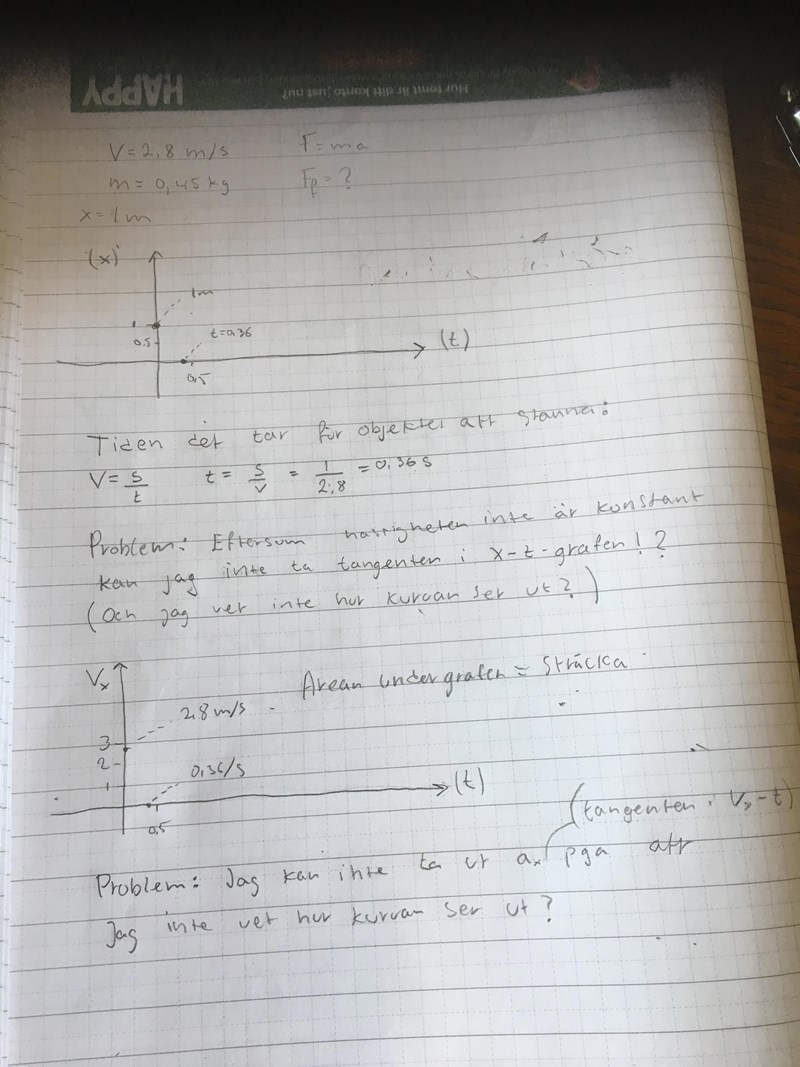 HAPPY
Hur tomt är ditt konto just nu?
V=2,8 m/s F=ma
m=0,45 kg Fp=?
x=1m
(x)
1m
1
t=0,36
0.5
(t)
0,5
Tiden det tar för objektet att stanna:
V=s/t t=s/v=1/2,8=0,36 s
Problem: Eftersom hastigheten inte är konstant
kan jag inte ta tangenten i x-t-grafen!?
(Och jag vet inte hur kurvan ser ut?)
Vx
Arean under grafen = Sträcka
2,8 m/s
3
2
0,36/s
1
(t)
0,5
(tangenten i Vx-t)
Problem: Jag kan inte ta ut ax pga att
Jag inte vet hur kurvan ser ut?